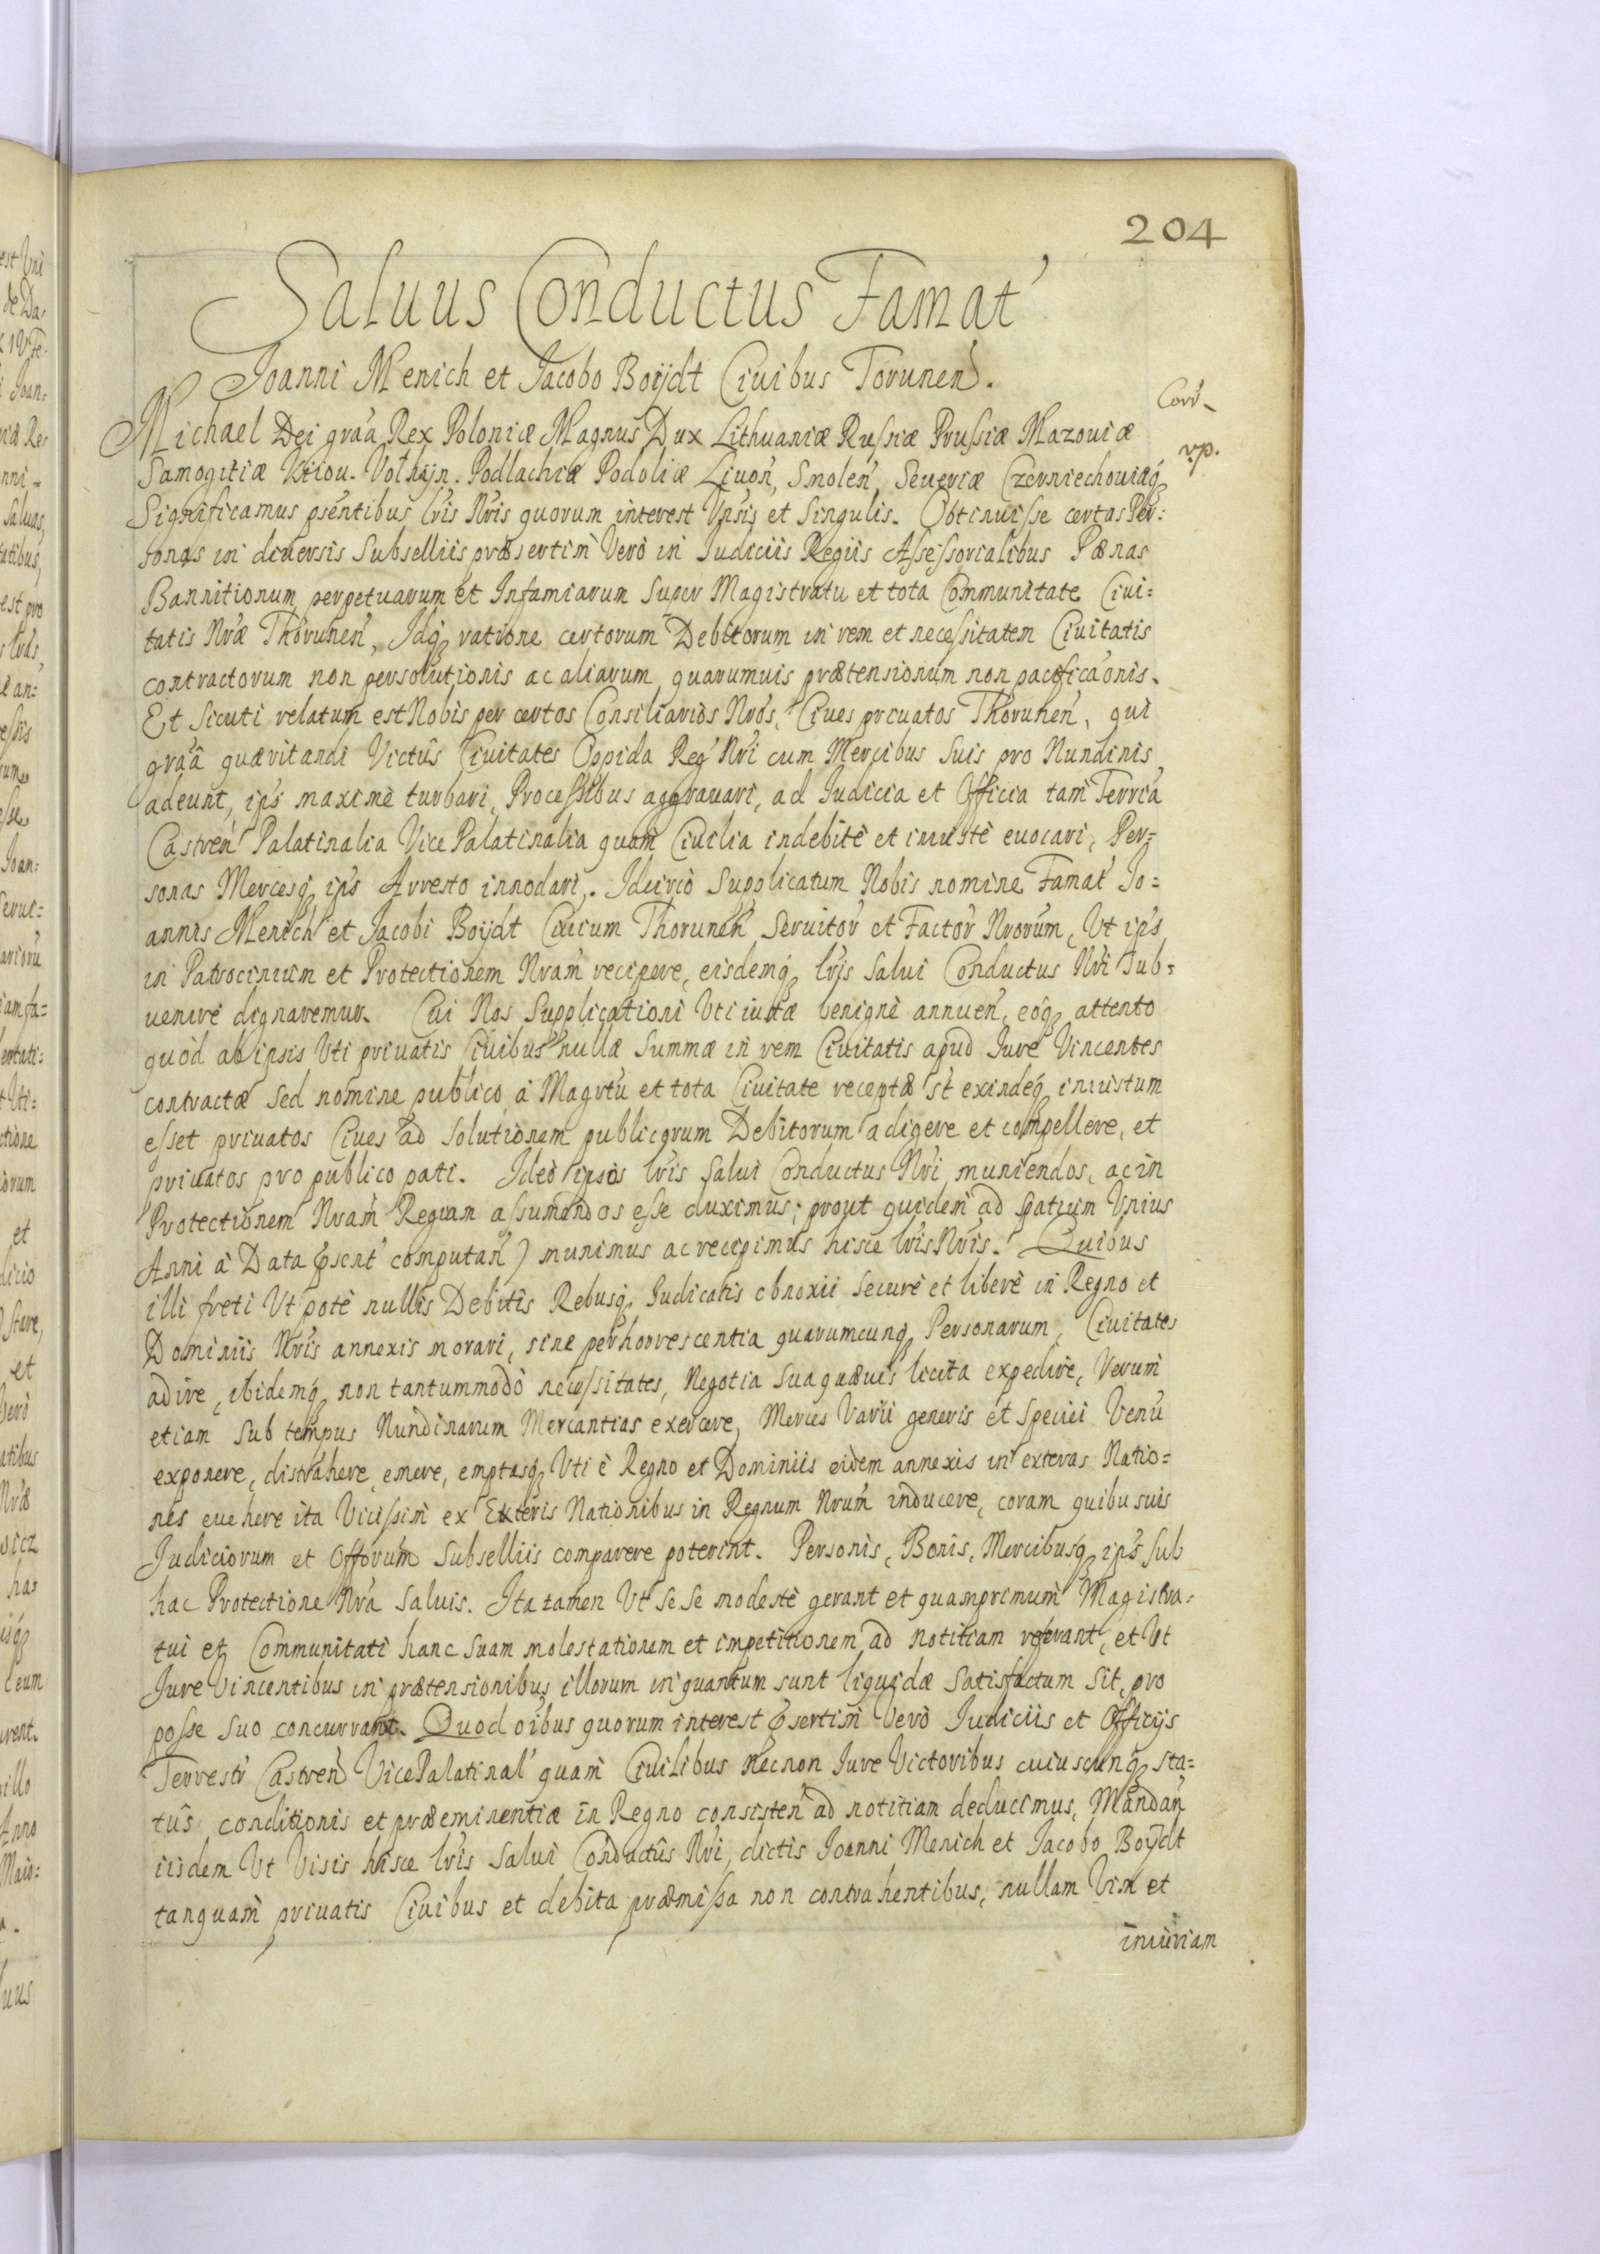 204
Saluus Conductus Famat'
Joanni Menich et Jacobo Boÿdt Ciuibus Torunen.
Cori
vp.
Michael Dei gra'a Rex Poloniæ Magnus Dux Lithuaniæ Russiæ Prussiæ Mazouiæ
Samogitiæ Kiiou. Volhÿn. Podlachiæ Podoliæ Liuon, Smolen, Seueriæ Czerniechouiæq
Significamus psentibus lris Nris quorum interest Vnsis et Singulis. Obtinuisse certas Per:
sonas in diuersis Subselliis præsertim Verò in Judiciis Regiis Assessorialibus Pænas
Bannitionum perpetuarum et Infamiarum super Magistratu et tota Communitate Ciui:
tatis Nræ Thorunen, Idq ratione certorum Debitorum in rem et necessitatem Ciuitatis
contractorum non persolutionis ac aliarum quarumuis prætensionum non pacificaonis.
Et sicuti relatum est Nobis per certos Consiliarios Nros, Ciues priuatos Thorunen, qui
gra'â quæritandi Victûs Ciuitates Oppida Reg' Nri cum Mercibus suis pro Nundinis
adeunt, ips maximè turbari, Processibus aggrauari, ad Judicia et Officia tam Terria
Castren Palatinalia Vice Palatinalia quam Ciuilia indebitè et iniustè euocari, Per=
sonas Mercesq ips Arresto innodari. Idcircò Supplicatum Nobis nomine Famat' Jo=
annis Menich et Jacobi Boÿdt Ciuium Thorunen Seruitor et Factor Nrorum, Ut ips
in Patrocinium et Protectionem Nram recipere, eisdemq lris Salui Conductus Nri sub=
uenire dignaremur. Cui Nos Supplicationi Uti iustæ benignè annuen, eoq attento
quòd ab ipsis Uti priuatis Ciuibus nullæ Summæ in rem Ciuitatis apud Jure Vincentes
contractæ sed nomine publico à Magrtu et tota Ciuitate receptæ st exindeq iniustum
esset priuatos Ciues ad solutionem publicorum Debitorum adigere et compellere, et
priuatos pro publico pati. Ideò ipsos lris Salui Conductus Nri muniendos, ac in
Protectionem Nram Regiam assumendos esse duximus; prout quidem ad spatium Vnius
Anni à Data psent' computan) munimus ac recipimus hisce lris Nris. Quibus
illi freti Ut potè nullis Debitis Rebusq Judicatis obnoxii securè et liberè in Regno et
Dominiis Nris annexis morari, sine perhorrescentia quarumcunq Personarum, Ciuitates
adire, ibidemq non tantummodò necessitates, Negotia sua quæuis licita expedire, Verum
etiam sub tempus Nundinarum Mercantias exercere, Merces Varii generis et speciei Venu
exponere, distrahere, emere, emptasq Uti è Regno et Dominiis eidem annexis in exteras Natio=
nes euehere ita Vicissim ex Exteris Nationibus in Regnum Nrum inducere, coram quibusuis
Judiciorum et Offorum Subselliis comparere poterint. Personis, Bonis, Mercibusq ips sub
hac Protectione Nra saluis. Ita tamen Ut se se modestè gerant et quamprimum Magistra=
tui et Communitati hanc suam molestationem et impetitionem ad notitiam referant, et Ut
Jure Vincentibus in prætensionibus illorum in quantum sunt liquidæ satisfactum sit, pro
posse suo concurrant. Quod oibus quorum interest psertim Verò Judiciis et Officÿs
Terrestr Castren Vice Palatinal' quam Ciuilibus Necnon Jure Victoribus cuiuscunq sta=
tûs conditionis et præeminentiæ in Regno consisten ad notitiam deducimus, Mandan
iisdem Ut Visis hisce lris Salui Conductûs Nri, dictis Joanni Menich et Jacobo Boÿdt
tanquam priuatis Ciuibus et debita præmissa non contrahentibus, nullam Vim et
iniuriam